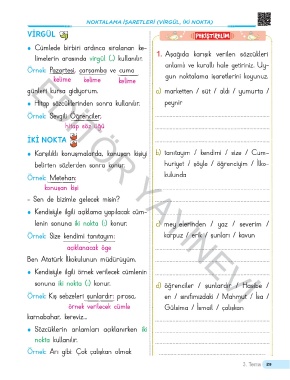 NOKTALAMA İŞARETLERİ (VİRGÜL, İKİ NOKTA)
VİRGÜL
• Cümlede birbiri ardınca sıralanan ke-
limelerin arasında virgül (,) kullanılır.
Örnek: Pazartesi, çarşamba ve cuma
kelime kelime kelime
günleri kursa gidiyorum.
• Hitap sözcüklerinden sonra kullanılır.
Örnek: Sevgili Öğrenciler,
hitap sözcüğü
İKİ NOKTA
• Karşılıklı konuşmalarda, konuşan kişiyi
belirten sözlerden sonra konur.
Örnek: Metehan:
konuşan kişi
– Sen de bizimle gelecek misin?
• Kendisiyle ilgili açıklama yapılacak cüm-
lenin sonuna iki nokta (:) konur.
Örnek: Size kendimi tanıtayım:
açıklanacak öge
Ben Atatürk İlkokulunun müdürüyüm.
• Kendisiyle ilgili örnek verilecek cümlenin
sonuna iki nokta (:) konur.
Örnek: Kış sebzeleri şunlardır: pırasa,
örnek verilecek cümle
karnabahar, kereviz...
• Sözcüklerin anlamları açıklanırken iki
nokta kullanılır.
Örnek: Arı gibi: Çok çalışkan olmak
PEKİŞTİRELİM
1. Aşağıda karışık verilen sözcükleri
anlamlı ve kurallı hale getiriniz. Uy-
gun noktalama işaretlerini koyunuz.
a) marketten / süt / aldı / yumurta /
peynir
b) tanıtayım / kendimi / size / Cum-
huriyet / şöyle / öğrenciyim / İlko-
kulunda
c) meyvelerinden / yaz / severim /
karpuz / erik / bunları / kavun
d) öğrenciler / şunlardır / Hasibe /
en / sınıfımızdaki / Mahmut / İsa /
Gülsima / İsmail / çalışkan
EDİTÖR YAYINEVİ
2. Tema
89